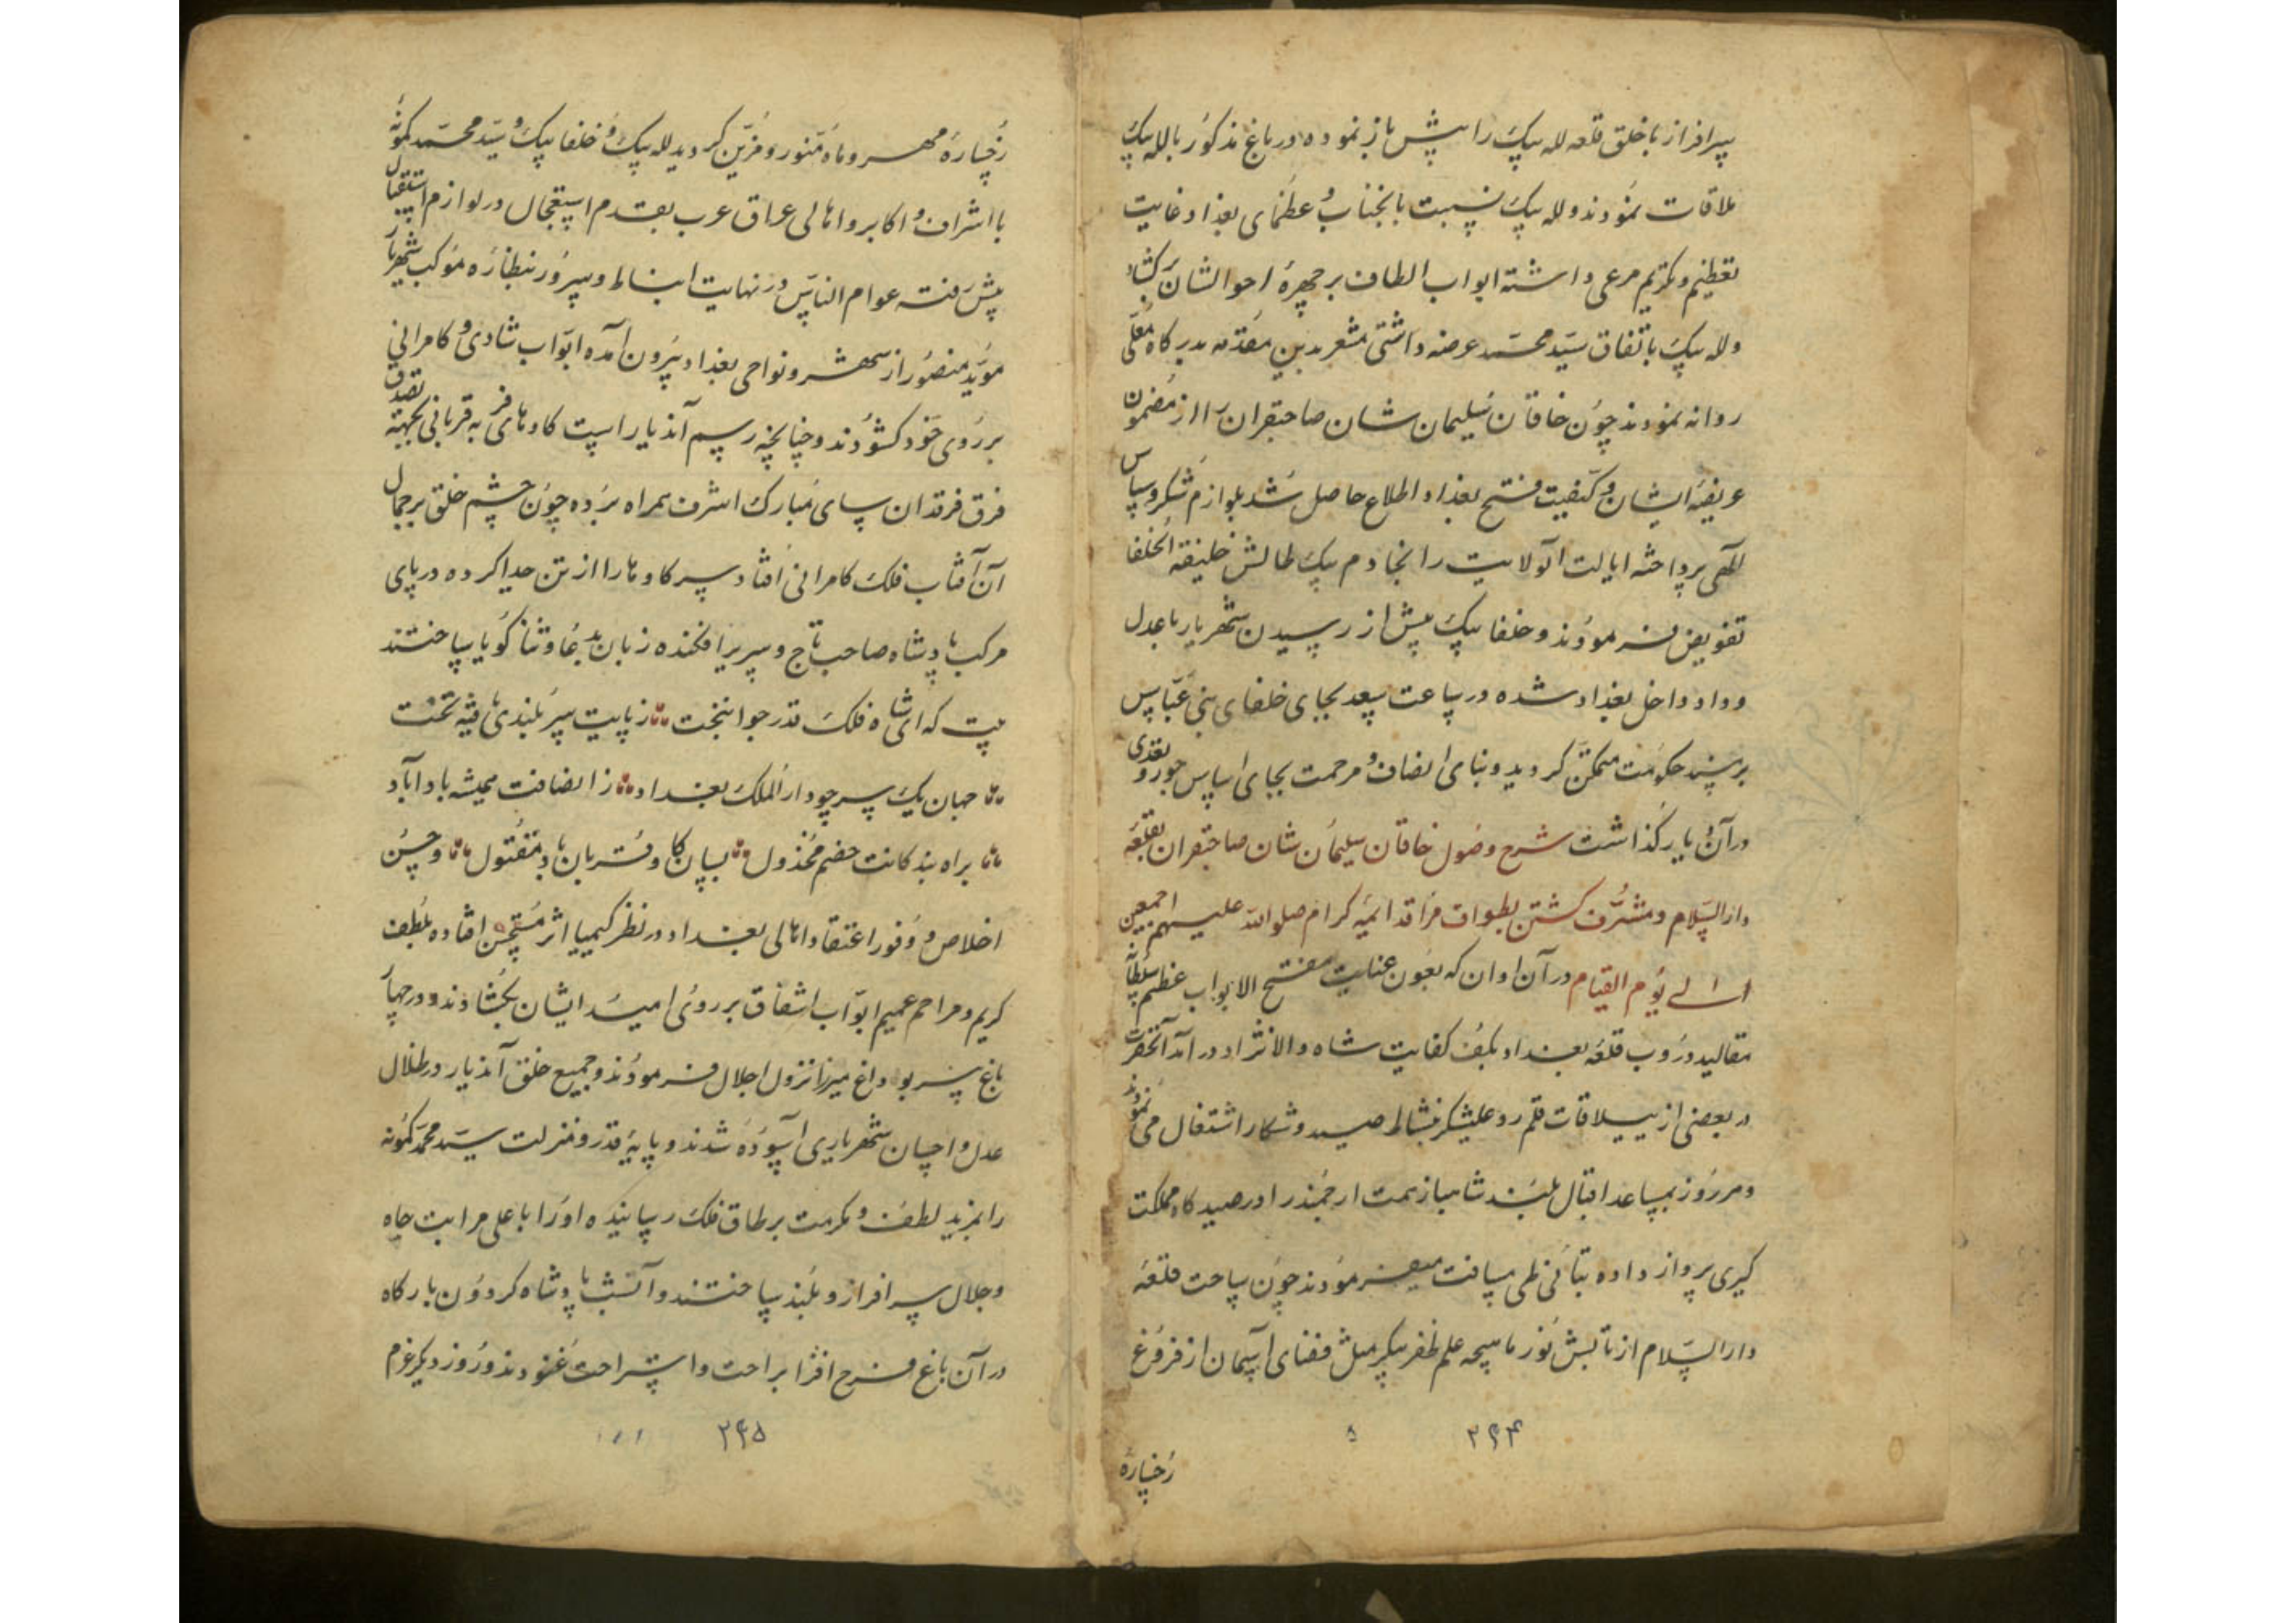 سرافراز با خلق قلعه لله بیک را پیش باز نموده در باغ مذکور با لله بیک
ملاقات نمودند و لله بیک نسبت بانجناب و عظمای بغداد غایت
تعظیم و تکریم مرعی داشته ابواب الطاف بر چهرهٔ احوالشان برکشاد
و لله بیک باتفاق سید محمد عرضه داشتی مشعر بدین مقدمه بدرکاه معلی
روانه نمودند چون خاقان سلیمان شان صاحبقران را از مضمون
عریضهٔ ایشان و کیفیت فتح بغداد اطلاع حاصل شد بلوازم شکر و سپاس
الهی پرداخته ایالت آنولایت را بخادم بیک طالش خلیفة الخلفا
تفویض فرمودند و خلفا بیک پیش از رسیدن شهریار با عدل
و داد داخل بغداد شده در ساعت سعد بجای خلفای بنی عباس
بر مسند حکومت متمکن کردید و بنای انصاف و مرحمت بجای اساس جور و تعدی
در آن دیار کذاشت شرح وصول خاقان سلیمان شان صاحبقران بقلعهٔ
دار السلام و مشرف کشتن بطواف مراقد ائمهٔ کرام صلوات الله علیهم اجمعین
الی یوم القیام در آن اوان که بعون عنایت مفتح الابواب عظم سلطانه
مقالید دروب قلعهٔ بغداد بکف کفایت شاه والانژاد در آمد آنحضرت
در بعضی از ییلاقات قلمرو علیشکر بنشاط صید و شکار اشتغال می نمودند
و هر روز بمساعد اقبال بلند شاهباز همت ارجمند را در صیدکاه مملکت
کیری پرواز داده بتأنی طی مسافت میفرمودند چون ساحت قلعهٔ
دار السلام از تابش نور ماهیچهٔ علم ظفر پیکر مثل فضای آسمان از فروغ
رخسارهٔ
۲۶۴
رخسارهٔ مهر و ماه منور و مزین کردید لله بیک و خلفا بیک و سید محمد کمونه
با اشراف و اکابر و اهالی عراق عرب بقدم استعجال در لوازم استقبال
پیش رفته عوام الناس در نهایت انبساط و سرور بنظارهٔ موکب شهریار
مؤید منصور از شهر و نواحی بغداد بیرون آمده ابواب شادی و کامرانی
بر روی خود کشودند و چنانچه رسم آندیار است کاوهای فربه قربانی بجهة تصدق
فرق فرقدان سای مبارک اشرف همراه برده چون چشم خلق بر جمال
آن آفتاب فلک کامرانی افتاد سر کاوها را از تن جدا کرده در پای
مرکب پادشاه صاحب تاج و سریر افکنده زبان بدعا و ثنا کویا ساختند
بیت که ای شاه فلک قدر جوانبخت ز پایت سر بلندی یافته تخت
جهان یک سر چو دار الملک بغداد ز انصافت همیشه باد آباد
براه بندکانت خصم مخذول بسان کاو قربان باد مقتول و حسن
اخلاص و وفور اعتقاد اهالی بغداد در نظر کیمیا اثر مستحسن افتاده بلطف
کریم و مراحم عمیم ابواب اشفاق بر روی امید ایشان بکشادند و در چهار
باغ پیر بوداغ میرزا نزول اجلال فرمودند و جمیع خلق آندیار در ظلال
عدل و احسان شهریاری آسوده شدند و پایهٔ قدر و منزلت سید محمد کمونه
را بمزید لطف و مکرمت بر طاق فلک رسانیده او را باعلی مراتب جاه
و جلال سرافراز و بلند ساختند و آنشب پادشاه کردون بارکاه
در آن باغ فرح افزا براحت و استراحت غنودند و روز دیکر عزم
۲۶۵